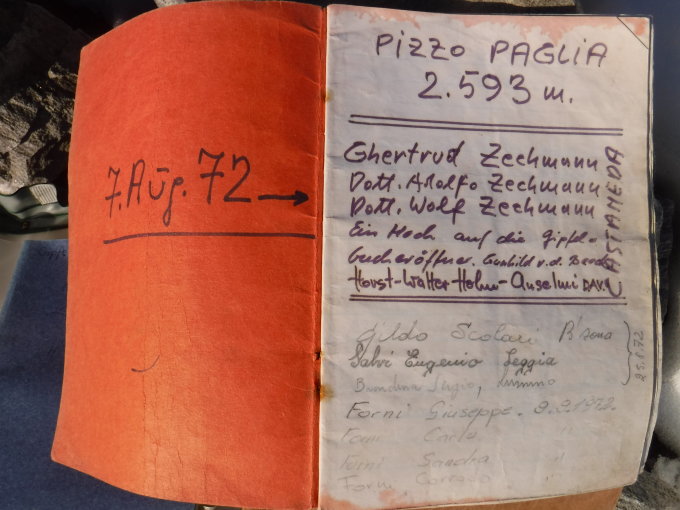 7. Aug. 72 →
PIZZO PAGLIA
2.593 m.
Ghertrud Zechmann
Dott. Adolfo Zechmann
Dott. Wolf Zechmann
CASTANEDA
Ein Hoch auf die Gipfel-
bucheröffner. Gunhild v. d.
Horst-Walter-Helm-Anselmi DAV.
Gildo Scolari B'zona
Salvi Eugenio Leggia
25.8.72
Forni Giuseppe. 9.9.1972.
Forni Carlo "
Forni Sandra "
Forni Corrado "